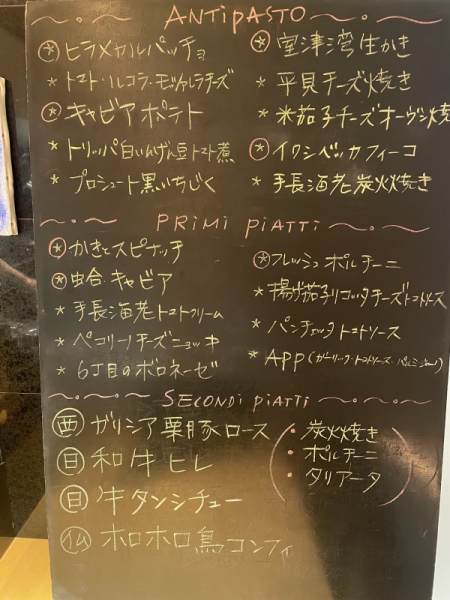 ANTIPASTO
* ヒラメカルパッチョ
* トマト・ルコラ・モッツァレラチーズ
* キャビアポテト
* トリッパ白いんげん豆トマト煮
* プロシュート黒いちじく
* 室津湾生かき
* 平貝チーズ焼き
* 米茄子チーズオーヴン焼
* イワシベッカフィーコ
* 手長海老炭火焼き
PRIMI PIATTI
* かきとスピナッチ
* 虫合・キャビア
* 手長海老トマトクリーム
* ペコリーノチーズニョッキ
* 6丁目のボロネーゼ
* フレッシュポルチーニ
* 揚げ茄子リコッタチーズトマトソース
* パンチェッタトマトソース
* APP(ガーリック・トマトソース・パルミジャーノ)
SECONDI PIATTI
西 ガリシア栗豚ロース
日 和牛ヒレ
日 牛タンシチュー
仏 ホロホロ鳥コンフィ
・炭火焼き
・ポルチーニ
・タリアータ